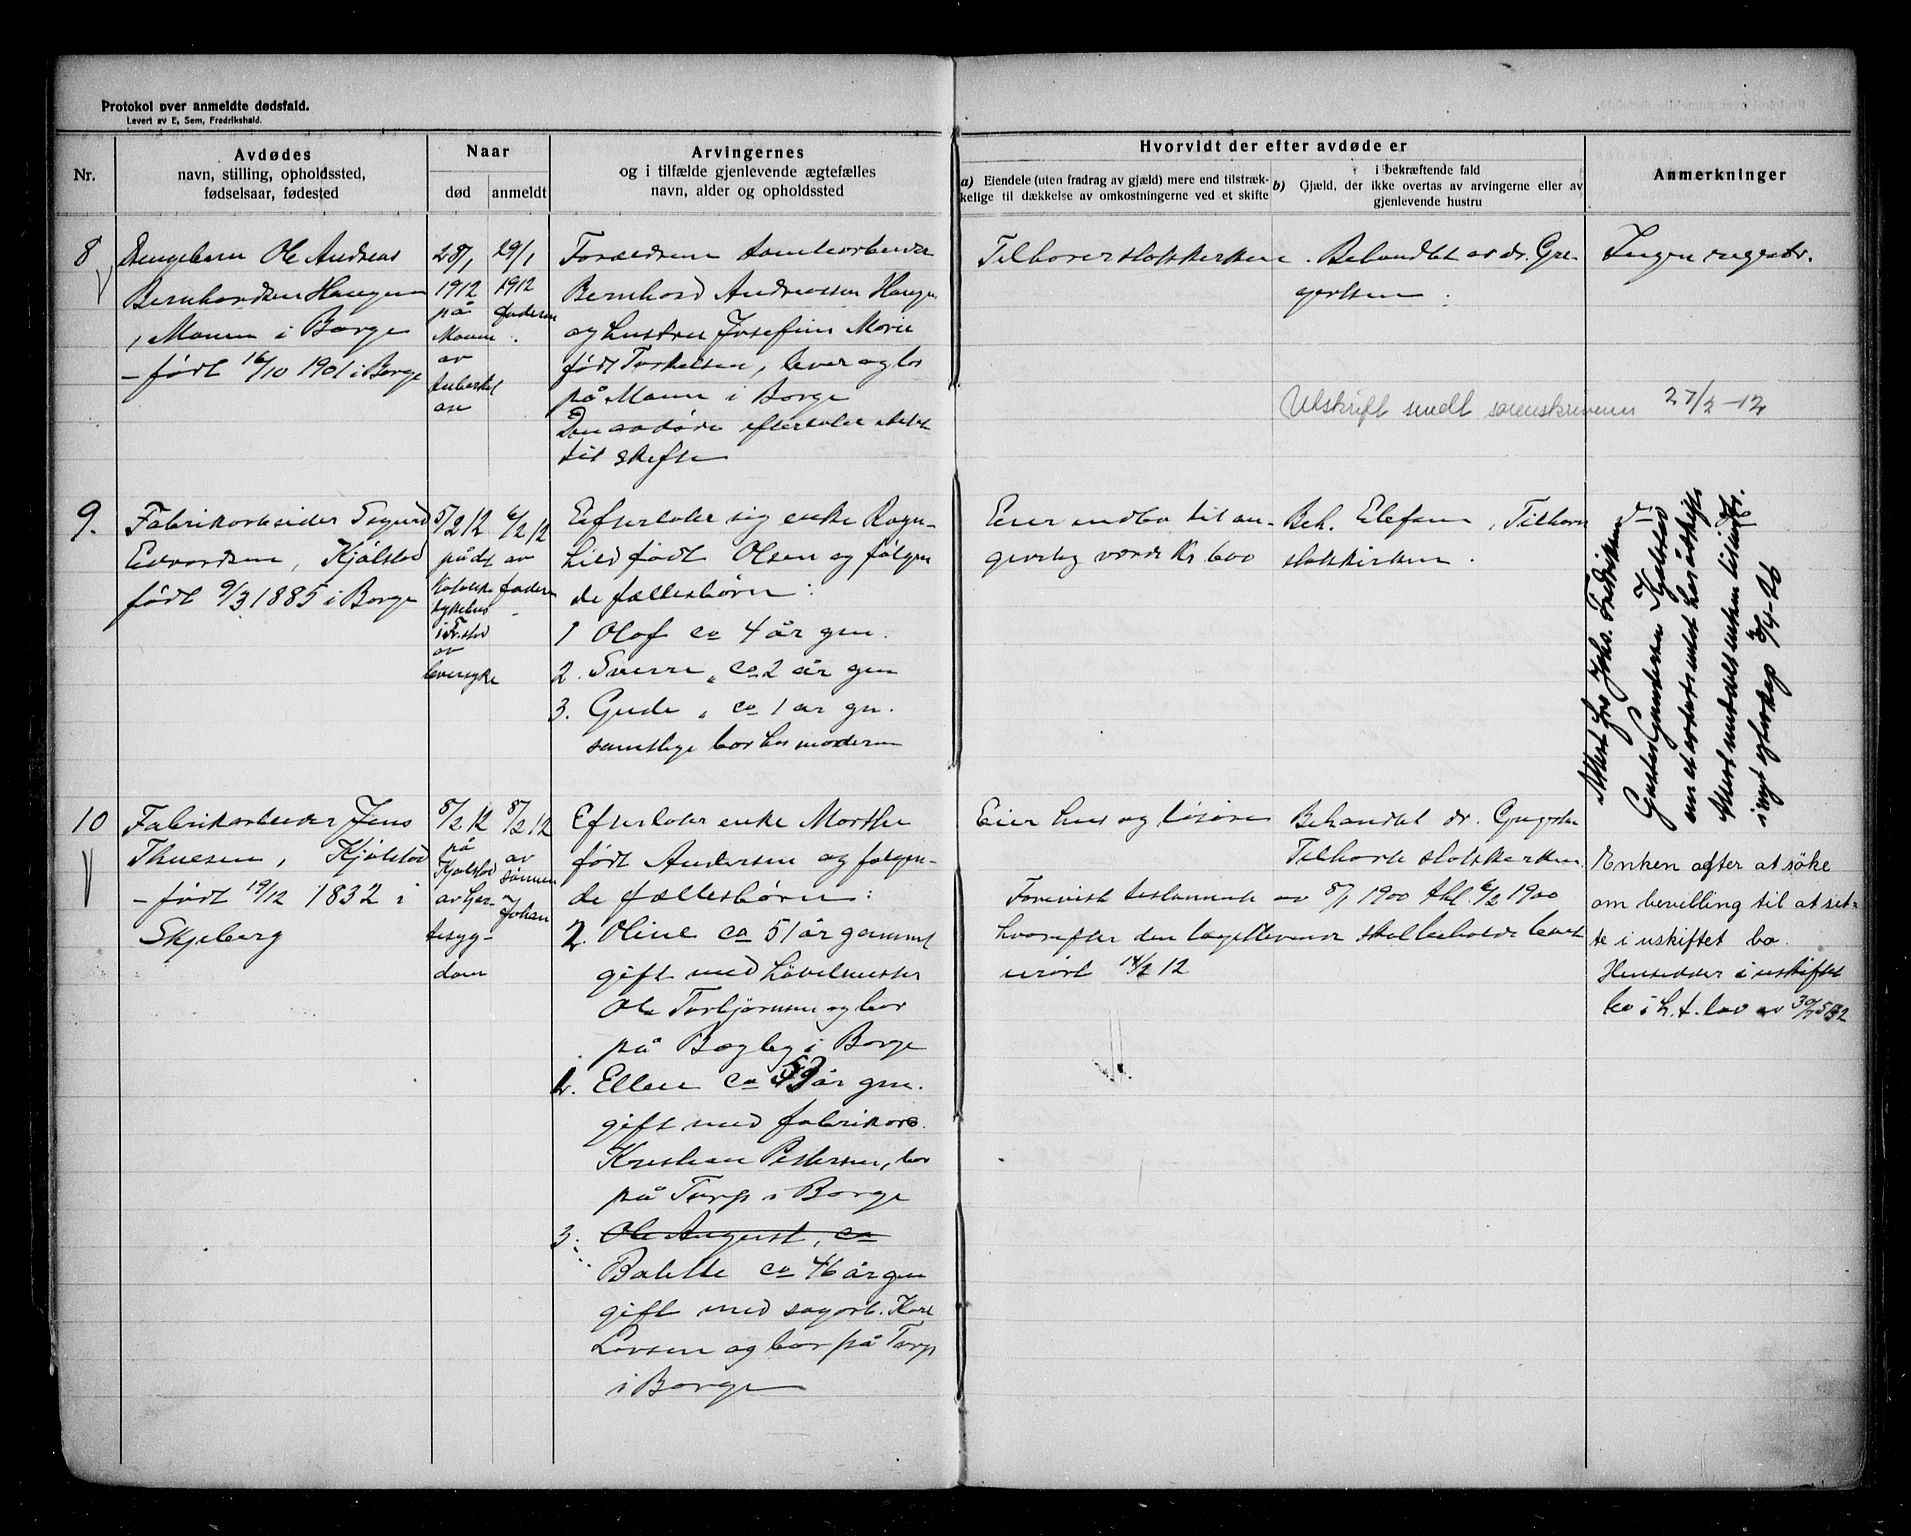 Protokol over anmeldte dødsfald.
Levert av E, Sem, Fredrikshald.
Nr.
Avdødes
navn, stilling, opholdssted,
fødselsaar, fødested
Naar
død
anmeldt
Arvingernes
og i tilfælde gjenlevende ægtefælles
navn, alder og opholdssted
Hvorvidt der efter avdøde er
a) Eiendele (uten fradrag av gjæld) mere end tilstræk-
kelige til dækkelse av omkostningerne ved et skifte
i bekræftende fald
b) Gjæld, der ikke overtas av arvingerne eller av
gjenlevende hustru
Anmerkninger
8
Ole Andreas
Bernhardsen Haugen
, Moum i Borge
- født 16/10 1901 i Borge
28/1
1912
på
Moum
av
tuberkul
ose
29/1
1912
faderen
Forældrene
Bernhard Andreassen Haugen
og hustru Josefine Marie
født Torkelsen, lever og bor
på Moum i Borge
Den avdøde efterlater intet
til skifte
Tilhører statskirken. Behandlet av dr. Gre-
gertsen.
Utskrift sendt sorenskriveren 27/2-12
9.
Fabrikarbeider Sigurd
Edvardsen, Kjølstad
født 9/3 1885 i Borge
5/2 12
på det
katolske
sykehus
i Fr.stad
av
leversyke
6/2 12
av
faderen
Efterlater sig enke Ragn-
hild født Olsen og følgen
de fællesbørn:
1 Olaf ca 4 år gm.
2. Sverre " ca 2 år gm
3. Gude " ca 1 år gm.
samtlige bor hos moderen
Eier indbo til an-
givelig værdi Kr 600
Beh. Elefsen, Tilhører
statskirken.
10
Fabrikarbeider Jens
Thuesen, Kjølstad
- født 19/12 1832 i
Skjeberg
5/2 12
på
Kjølstad
av hjer-
tesyg-
dom
8/2 12
av
sønnen
Johan
Efterlater enke Marthe
født Andersen og følgen-
de fællesbørn:
2. Oline ca 51 år gammel
gift med høvelmester
Ole Torbjørnsen og bor
på Begby i Borge
1. Ellen ca 53 år gm.
gift med fabrikarb.
Kristian Pettersen, bor
på Torp i Borge
3. Ole August, ca
Bolette ca 46 år gm
gift med sagarb. Karl
Larsen og bor på Torp
i Borge
Eier hus og løsøre
Behandlet dr. Gregertsen
Tilhørte statskirken.
Forevist testamente av 5/1 1900 thl. 6/2 1900
hvorefter den længstlevende skal beholde boet
urørt 14/2 12
Enken agter at söke
om bevilling til at sit-
te i uskiftet bo.
Hensidder i uskiftet
bo i h. t. lov av